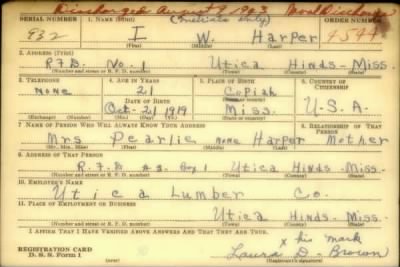 Discharged August 8, 1943 Moral Discharge
SERIAL NUMBER 1. NAME (Print) (Initials only) ORDER NUMBER
932 I W. Harper 4544
(First) (Middle) (Last)
2. ADDRESS (Print)
R.F.D. No. 1 Utica Hinds - Miss.
(Number and street or R. F. D. number) (Town) (County) (State)
3. TELEPHONE 4. AGE IN YEARS 5. PLACE OF BIRTH 6. COUNTRY OF CITIZENSHIP
None 21 Copiah
DATE OF BIRTH (Town or county)
Oct-21 1919 Miss. U.S.A.
(Exchange) (Number) (Mo.) (Day) (Yr.) (State or country)
7. NAME OF PERSON WHO WILL ALWAYS KNOW YOUR ADDRESS 8. RELATIONSHIP OF THAT PERSON
Mrs Pearlie none Harper Mother
(Mr., Mrs., Miss) (First) (Middle) (Last)
9. ADDRESS OF THAT PERSON
Utica Hinds - Miss.
(Number and street or R. F. D. number) (Town) (County) (State)
10. EMPLOYER'S NAME
Utica Lumber Co.
11. PLACE OF EMPLOYMENT OR BUSINESS
Utica Hinds - Miss.
(Number and street or R. F. D. number) (Town) (County) (State)
I AFFIRM THAT I HAVE VERIFIED ABOVE ANSWERS AND THAT THEY ARE TRUE.
REGISTRATION CARD x his mark
D. S. S. Form 1 Laura D. Brown
(Registrant's signature)